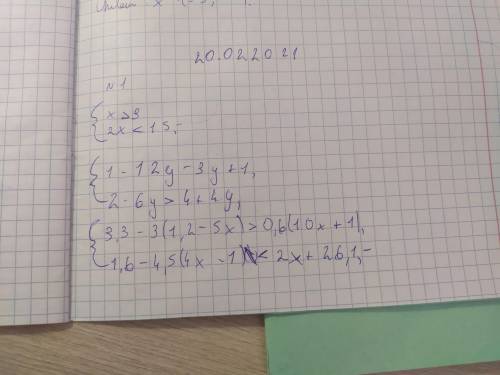 20.02.2021
№1
x>9
2x < 15,-
1-12y-3y+1,
2-6y>4+4y,
3,3-3(1,2-5x)>0,6(10x+1),
1,6-4,5(4x-1)< 2x+26,1,-